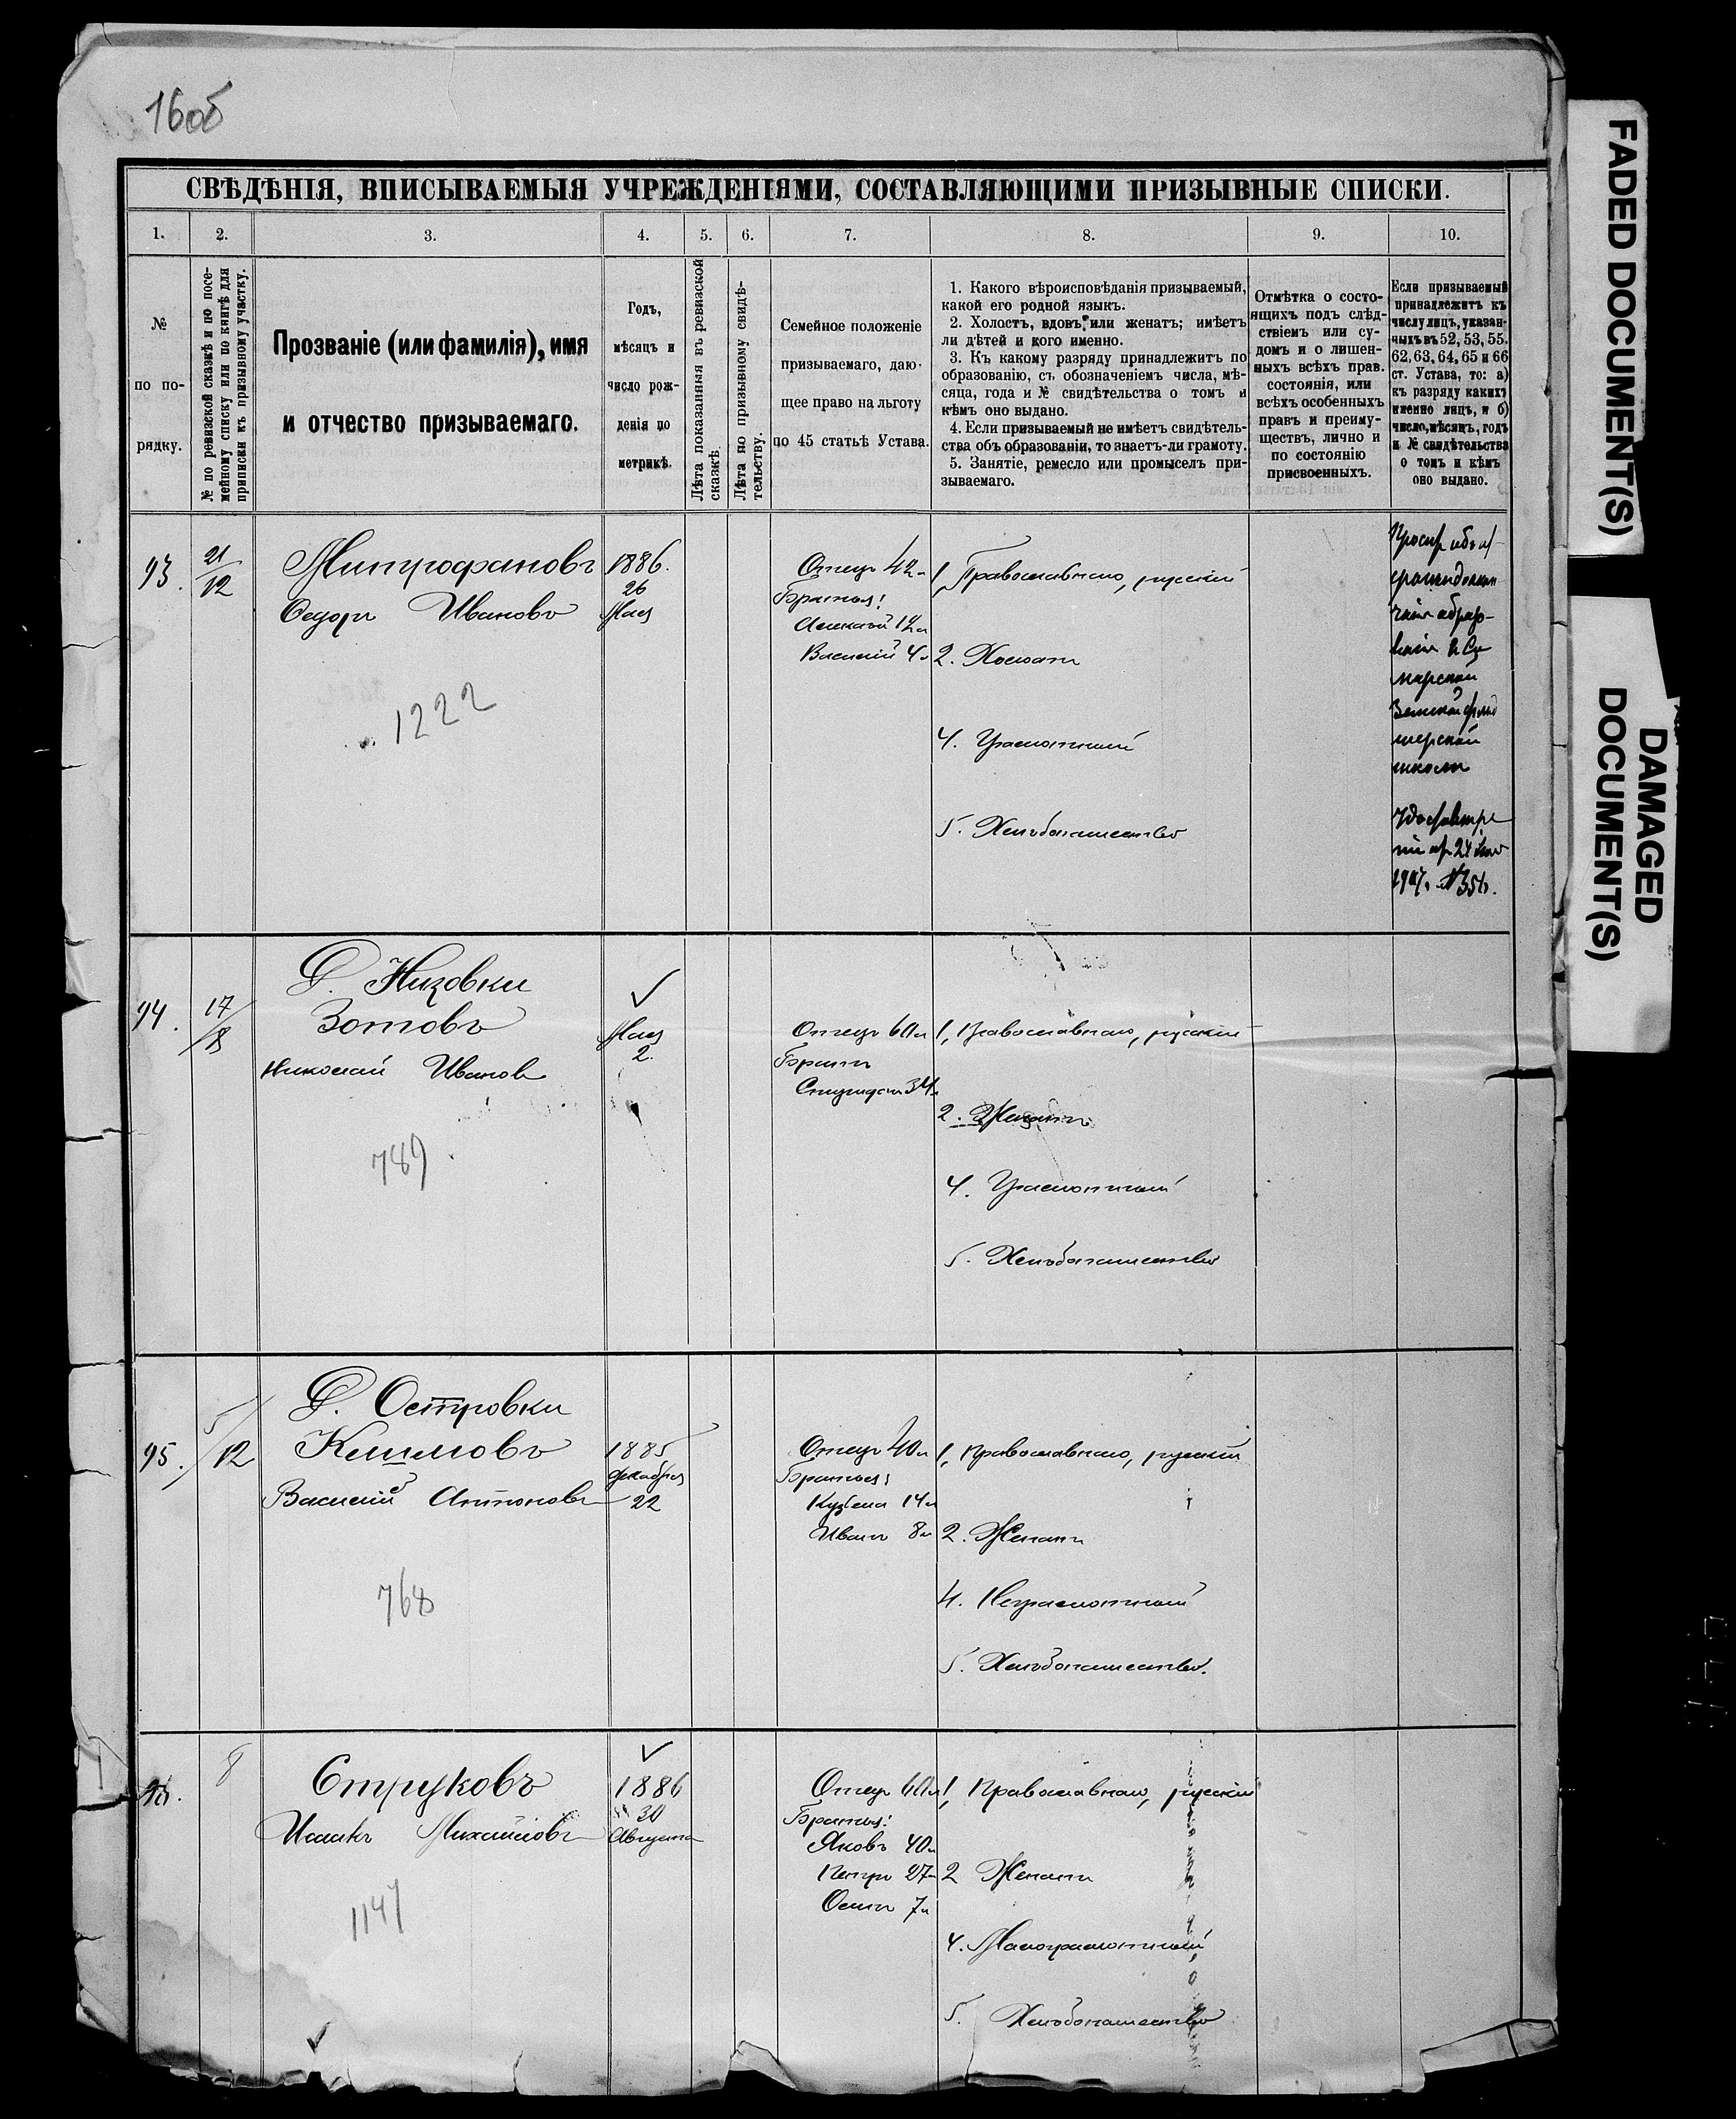 16об
СВѢДѢНІЯ, ВПИСЫВАЕМЫЯ УЧРЕЖДЕНІЯМИ, СОСТАВЛЯЮЩИМИ ПРИЗЫВНЫЕ СПИСКИ.
1. 2. 3. 4. 5. 6. 7. 8. 9. 10.
№
по по-
рядку.
№ по ревизской сказкѣ и по посе-
мейному списку или по книгѣ для
приписки къ призывному участку.
Прозваніе (или фамилія), имя
и отчество призываемаго.
Годъ,
мѣсяцъ и
число рож-
денія по
метрикѣ.
Лѣта показанныя въ ревизской
сказкѣ.
Лѣта по призывному свидѣ-
тельству.
Семейное положеніе
призываемаго, даю-
щее право на льготу
по 45 статьѣ Устава.
1. Какого вѣроисповѣданія призываемый,
какой его родной языкъ.
2. Холостъ, вдовъ, или женатъ; имѣетъ
ли дѣтей и кого именно.
3. Къ какому разряду принадлежитъ по
образованію, съ обозначеніемъ числа, мѣ-
сяца, года и № свидѣтельства о томъ и
кѣмъ оно выдано.
4. Если призываемый не имѣетъ свидѣтель-
ства объ образованіи, то знаетъ-ли грамоту.
5. Занятіе, ремесло или промыселъ при-
зываемаго.
Отмѣтка о состо-
ящихъ подъ слѣд-
ствіемъ или су-
домъ и о лишен-
ныхъ всѣхъ прав.
состоянія, или
всѣхъ особенныхъ
правъ и преиму-
ществъ, лично и
по состоянію
присвоенныхъ.
Если призываемый
принадлежитъ къ
числу лицъ, указан-
ныхъ въ 52, 53, 55.
62, 63, 64, 65 и 66
ст. Устава, то: а)
къ разряду какихъ
именно лицъ, и б)
число, мѣсяцъ, годъ
и № свидѣтельства
о томъ и кѣмъ
оно выдано.
93.
21/12
Митрофановъ
Ѳедоръ Ивановъ
1222
1886.
26
Мая
Отецъ 42
Братья:
Алексѣй 12 л
Василій 4 л
1, Православнаго, русскій
2. Холостъ
4. Грамотный
5. Хлѣбопашество
школы
№ 356.
Д. Низовки
94.
17/8
Зотовъ
Николай Иванов
789
Мая
2.
Отецъ 60 л
Братъ
Спиридон 34 л
1, Православнаго, русскій
2. Женатъ
4. Грамотный
5. Хлѣбопашество
Д. Островки
95.
5/12
Климовъ
Василій Антоновъ
768
1885
декабря
22
Отецъ 40 л
Братья:
Кузьма 14 л
Иванъ 8 л
1, Православнаго, русскій
2. Женатъ
4. Неграмотный
5. Хлѣбопашество.
96.
8
Струковъ
Исаакъ Михайловъ
1147
1886
30
Августа
Отецъ 60 л
Братья:
Яковъ 40 л
Петръ 27
Осипъ 7 л
1, Православнаго, русскій
2 Женатъ
4. Малограмотный
5. Хлѣбопашество
FADED DOCUMENT(S)
DAMAGED
DOCUMENT(S)